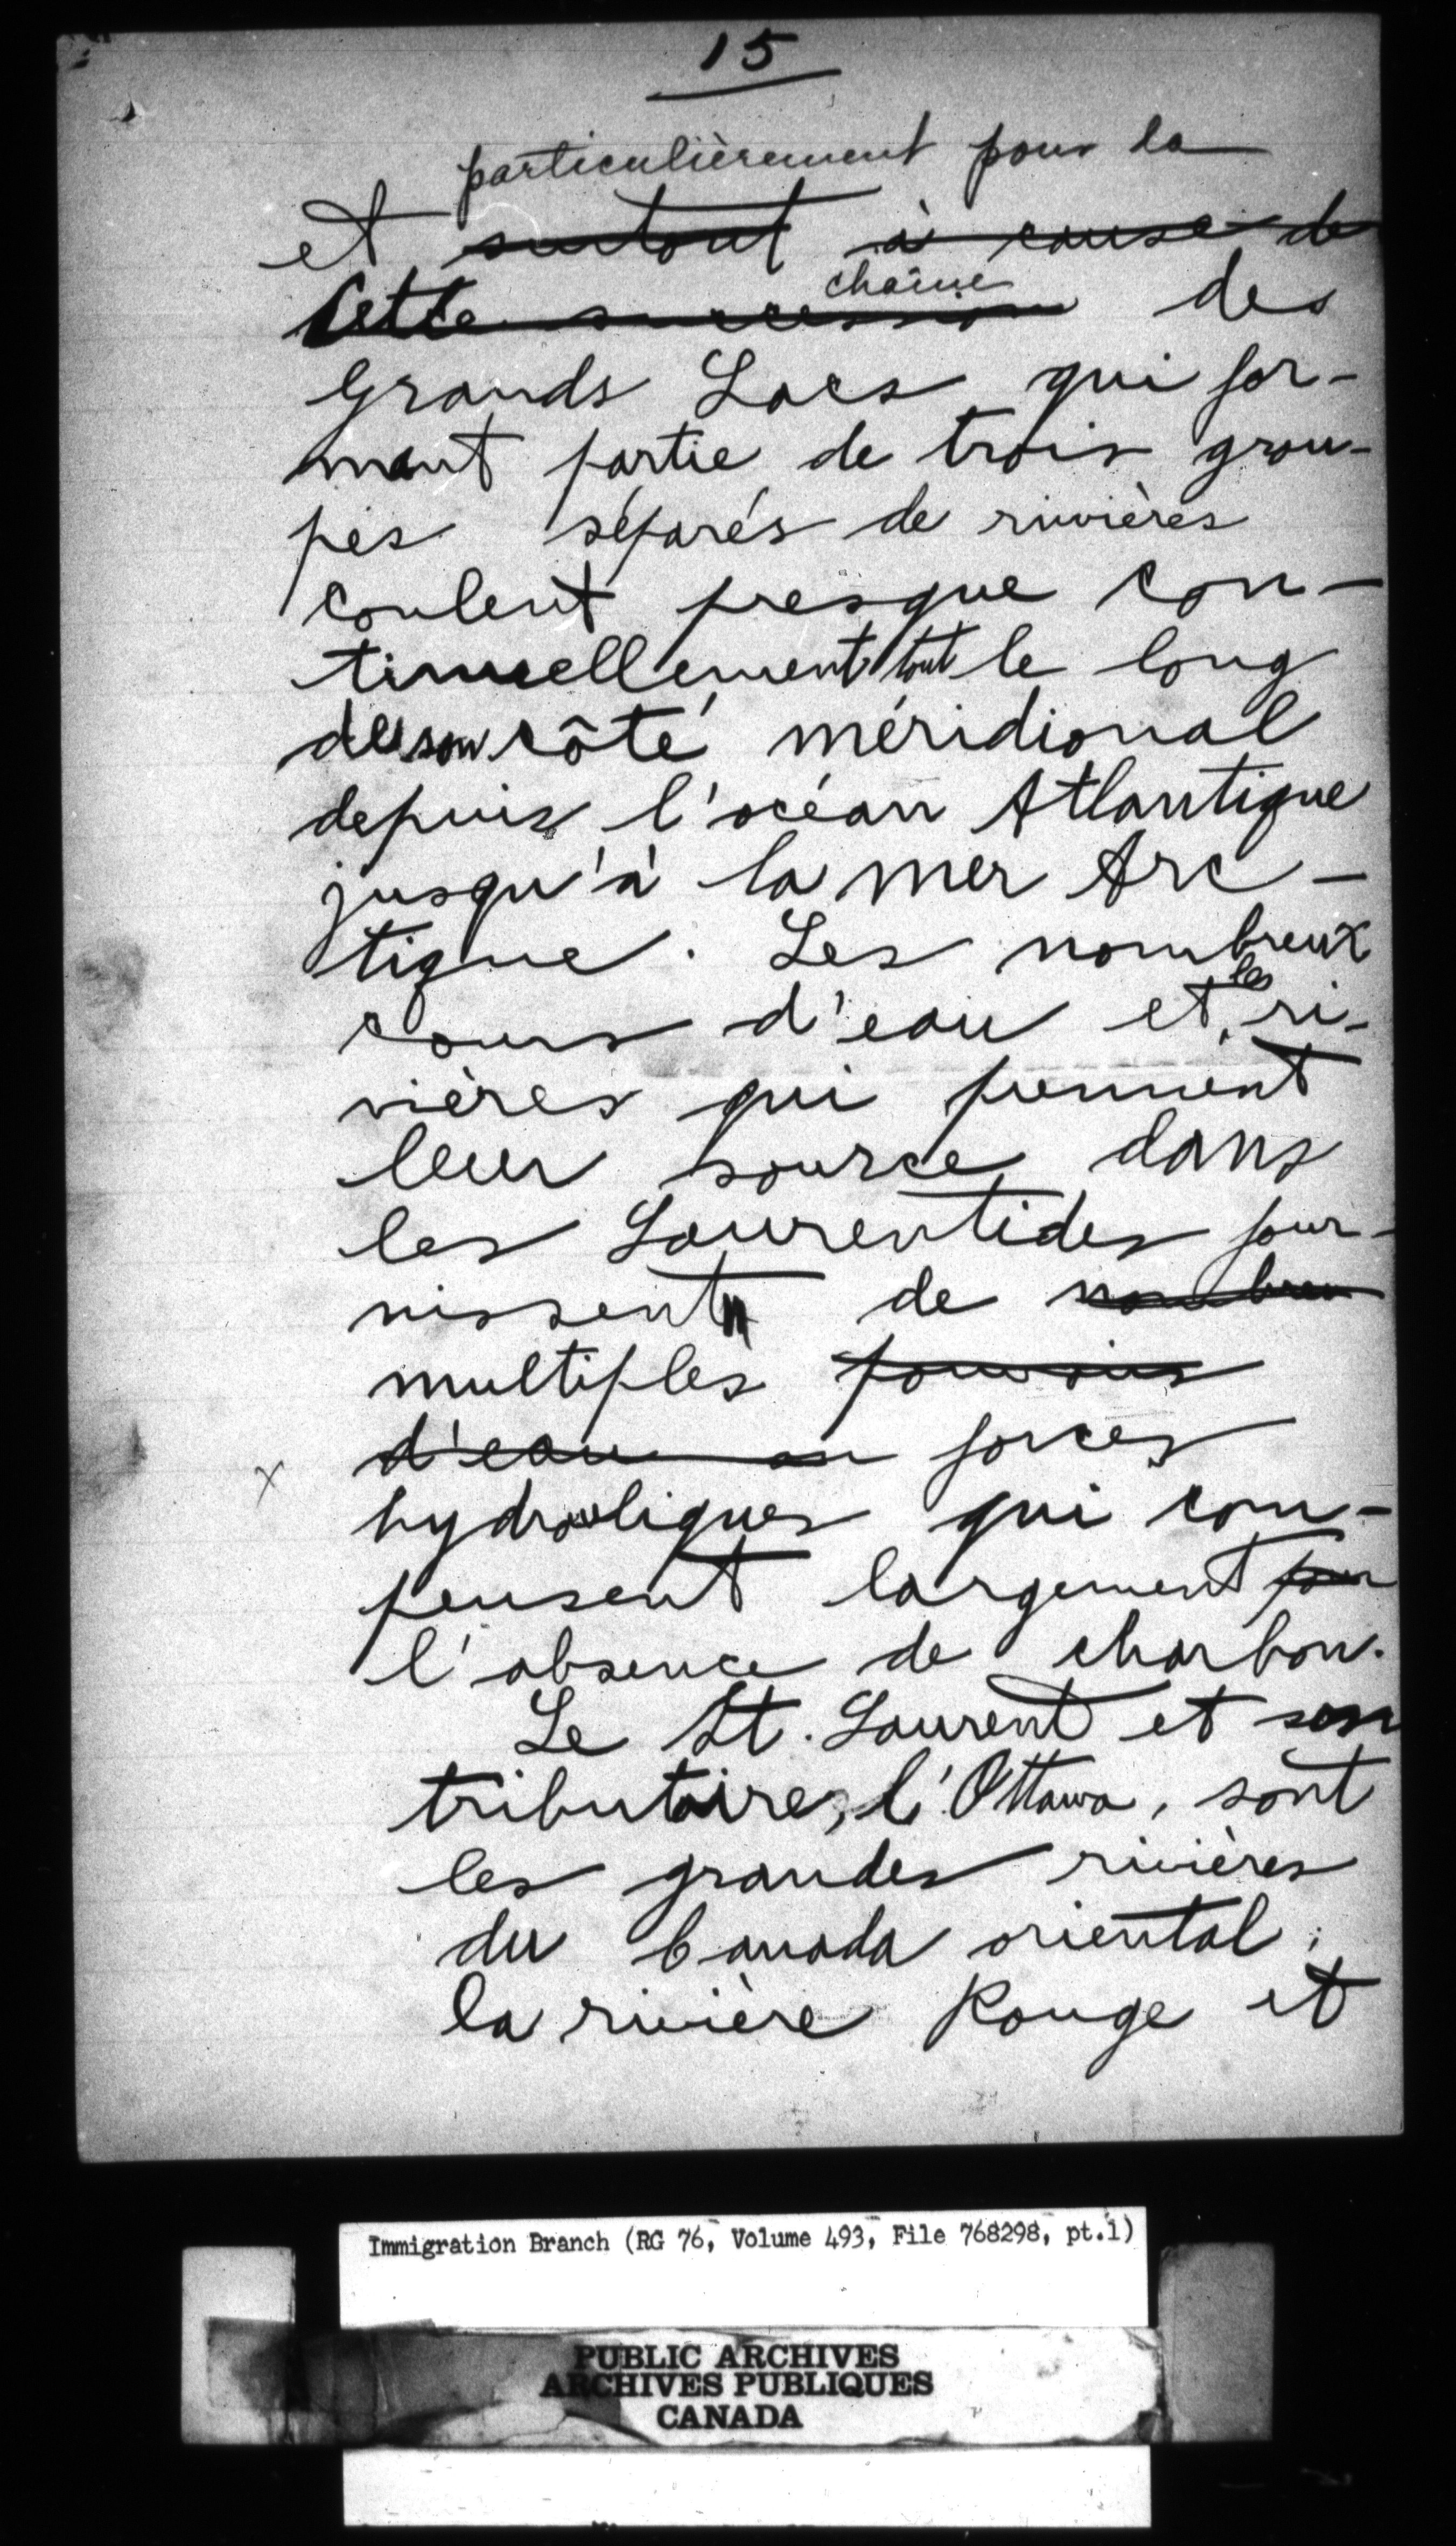 15
particulièrement pour la
et surtout à cause de
chaîne
Cette succession des
Grands Lacs qui for-
mant partie de trois grou-
pes séparés de rivières
coulent presque con-
tinuellement tout le long
de son côté méridional
depuis l'océan Atlantique
jusqu'à la mer Arc-
tique. Les nombreux
les
cours d'eau et ri-
vières qui prennent
leur source dans
les Laurentides four-
nissent de nombreu
multiples pouvoirs
d'eau ou forces
x
hydrauliques qui com-
pensent largement pour
l'absence de charbon.
Le St. Laurent et son
tributaire, l'Ottawa, sont
les grandes rivières
du Canada oriental;
la rivière Rouge et
Immigration Branch (RG 76, Volume 493, File 768298, pt.1)
PUBLIC ARCHIVES
ARCHIVES PUBLIQUES
CANADA